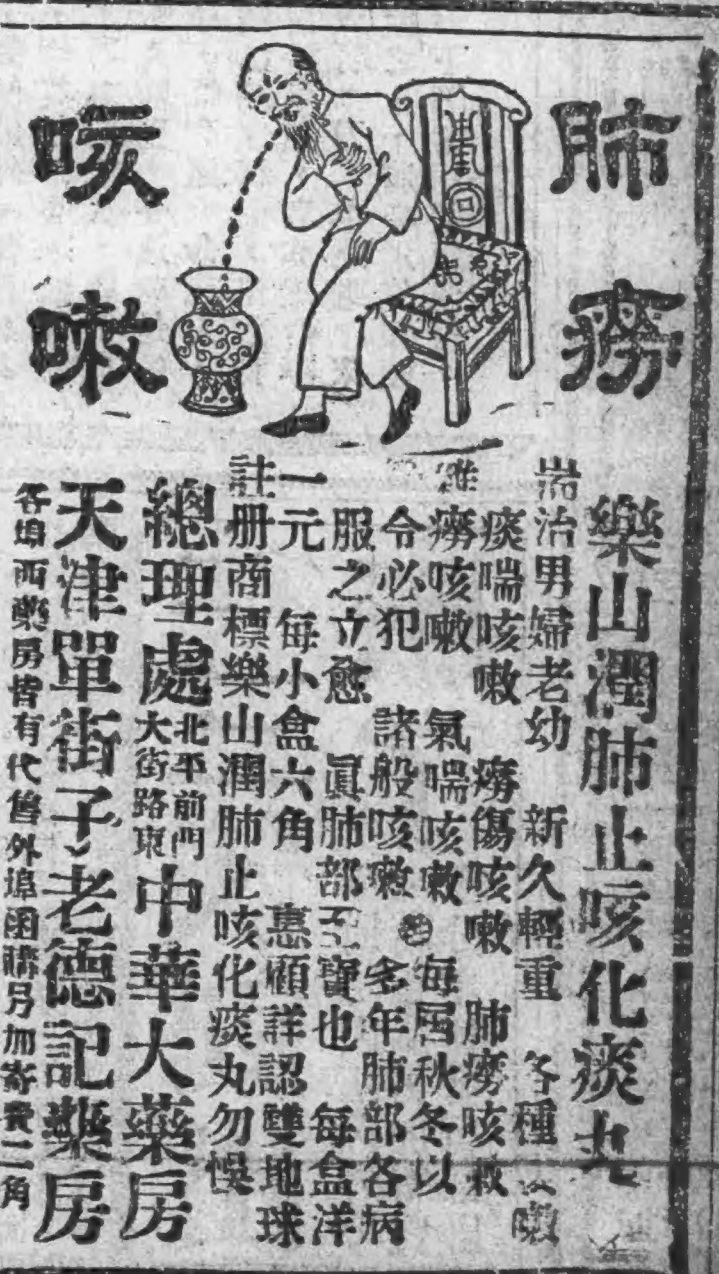 肺癆
咳嗽
樂山潤肺止咳化痰丸
耑治男婦老幼 新久輕重 各種 嗽
痰喘咳嗽 癆傷咳嗽 肺癆咳嗽
癆咳嗽 氣喘咳嗽 每屆秋冬以
令必犯 諸般咳嗽 多年肺部各病
服之立愈 眞肺部至寶也 每盒洋
一元 每小盒六角 惠顧詳認雙地球
註册商標樂山潤肺止咳化痰丸勿悞
總理處 北平前門大街路東 中華大藥房
天津單街子老德記藥房
各埠西藥房皆有代售外埠函購另加寄費二角